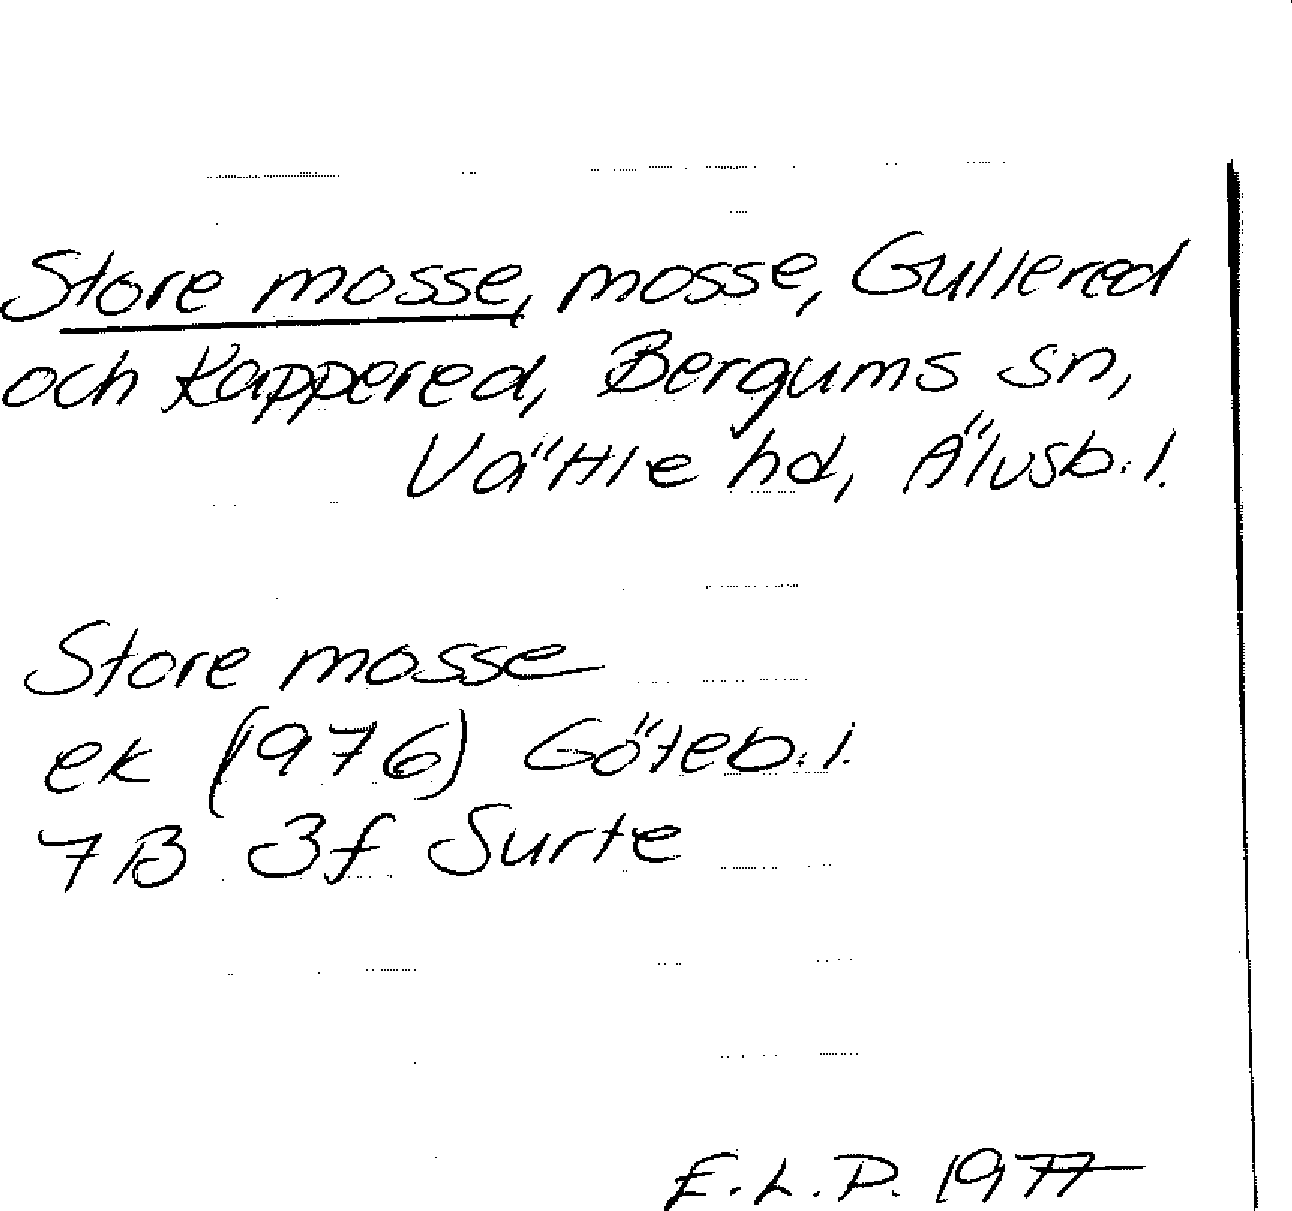 Store mosse, mosse, Gullered
och Kappered, Bergums sn,
Vättle hd, Älvsb. l.
Store mosse
ek (1976) Göteb. l.
7B 3f Surte
E.L.P. 1977